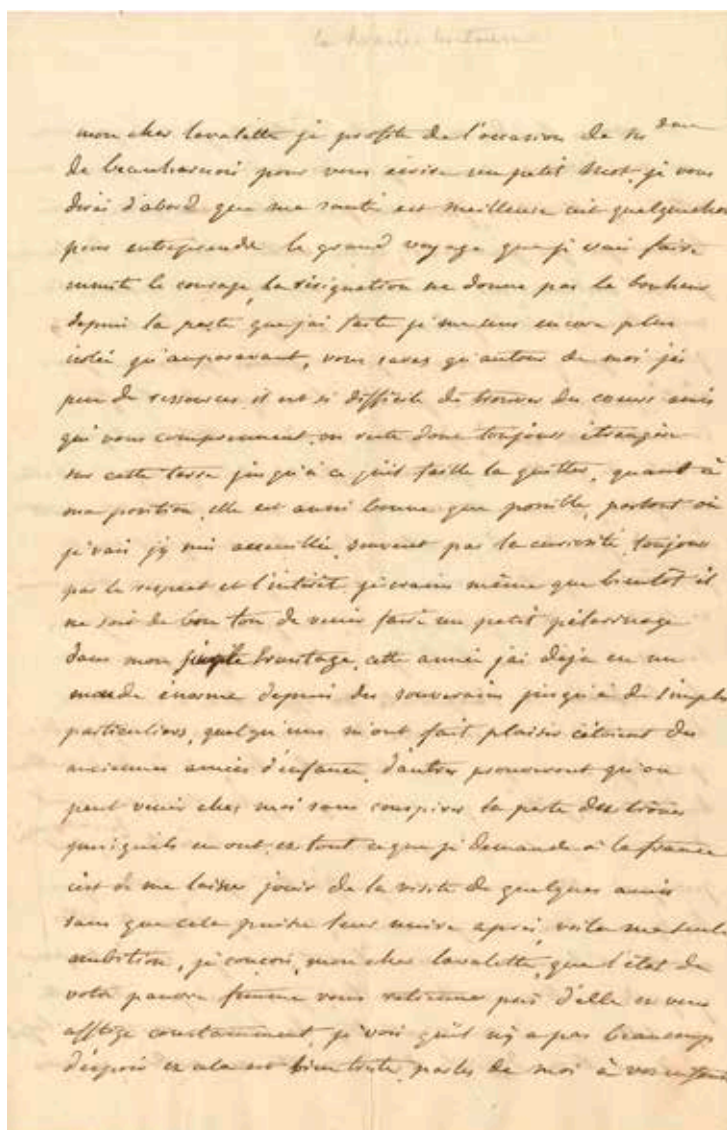 mon cher lavalette je profite de l'occasion de m dame
de beauharnois pour vous ecrire un petit mot, je vous
dirai d'abord que ma santé est meilleure c'est quelquechose
pour entreprendre le grand voyage que je vais faire
ensuite le courage, la résignation ne donne pas le bonheur
depuis la perte que j'ai faite je me sens encore plus
isolée qu'auparavant, vous savez qu'autour de moi j'ai
peu de ressources il est si difficile de trouver des coeurs amis
qui vous comprennent, on reste donc toujours étrangère
sur cette terre jusqu'à ce qu'il faille la quitter, quant à
ma position, elle est aussi bonne que possible, partout où
je vais j'y suis accueillie, souvent par la curiosité, toujours
par le respect et l'intérêt, je crains même que bientôt il
ne soit de bon ton de venir faire un petit pélerinage
dans mon hermitage, cette année j'ai deja eu un
monde énorme depuis des souverains jusqu'à de simples
particuliers, quelqu'uns m'ont fait plaisir c'étoient des
anciennes amies d'enfance, d'autres prouveront qu'on
peut venir chez moi sans conspirer la perte des trônes
puisqu'ils en ont, et tout ce que je demande à la france
c'est de me laisser jouir de la visite de quelques amis
sans que cela puisse leur nuire après, voila ma seule
ambition, je conçois, mon cher lavalette, que l'état de
votre pauvre femme vous retienne près d'elle et vous
afflige constamment, je vois qu'il n'y a pas beaucoup
d'espoir et cela est bien triste, parlez de moi à vos enfans